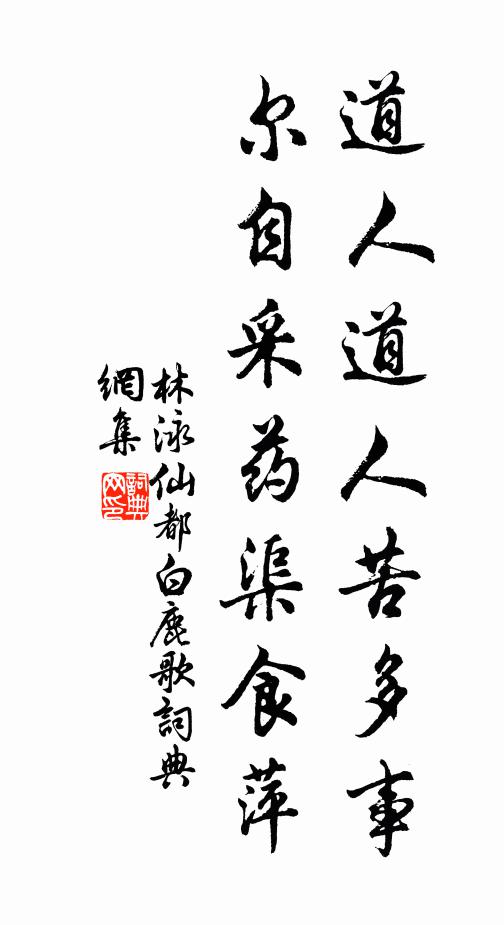 道人道人苦多事
尔自采药渠食萍
林泳仙都白鹿歌词典
網集
詞典
网印